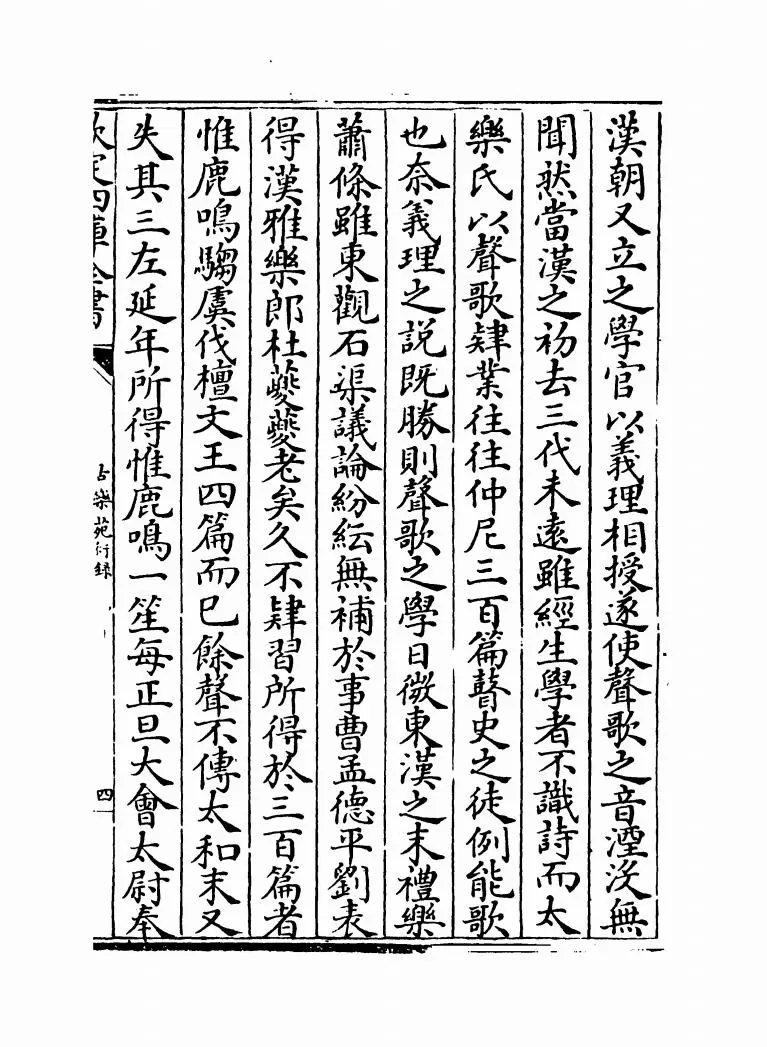 漢朝又立之學官以義理相授遂使聲歌之音湮没無
聞然當漢之初去三代未遠雖經生學者不識詩而太
樂氏以聲歌肄業往往仲尼三百篇瞽史之徒例能歌
也奈義理之說既勝則聲歌之學日微東漢之末禮樂
蕭條雖東觀石渠議論紛紜無補於事曹孟德平劉表
得漢雅樂郎杜夔夔老矣久不肄習所得於三百篇者
惟鹿鳴騶虞伐檀文王四篇而已餘聲不傳太和末又
失其三左延年所得惟鹿鳴一笙每正旦大會太尉奉
欽定四庫全書
古樂苑衍録
四